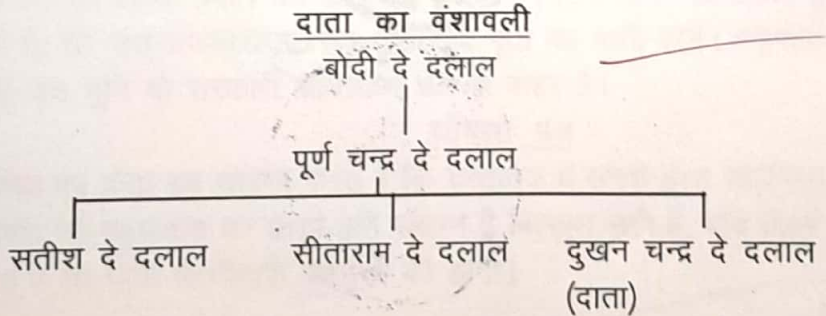 दाता का वंशावली
बोदी दे दलाल
पूर्ण चन्द्र दे दलाल
सतीश दे दलाल सीताराम दे दलाल दुखन चन्द्र दे दलाल
(दाता)